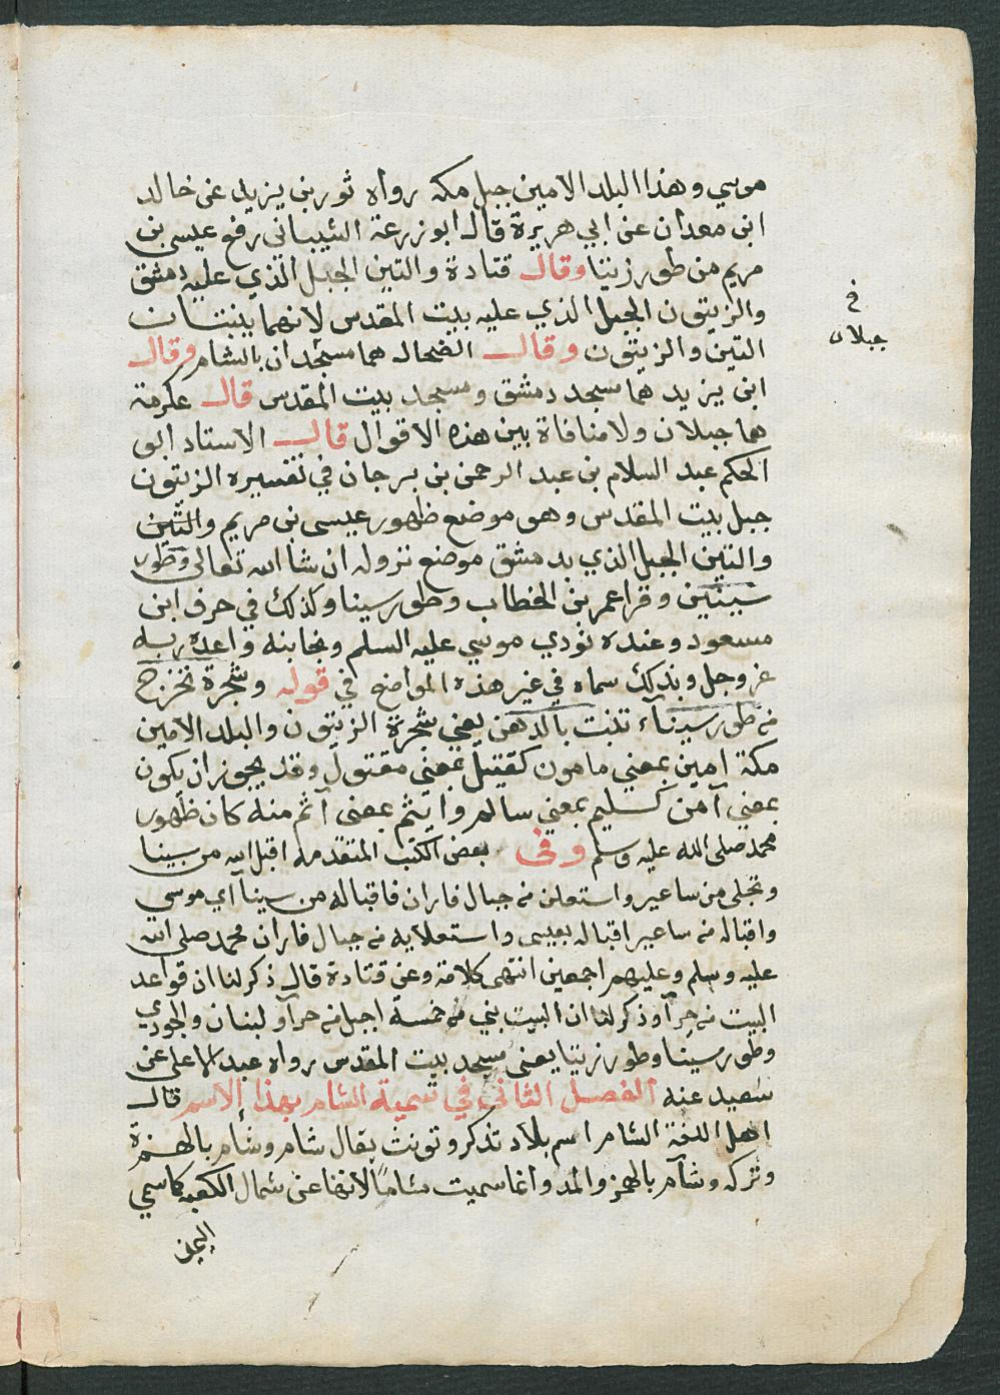 موسي وهذا البلد الامين جبل مكه رواه ثور بن يزيد عن خالد
ابن معدان عن ابي هريرة قال ابو زرعة الشيباني رفع عيسى بن
مريم من طور زيتا وقال قتادة والتين الجبل الذي عليه دمشق
والزيتون الجبل الذي عليه بيت المقدس لانهما ينبتان
خ
جبلان
التين والزيتون وقال الضحاك هما مسجدان بالشام وقال
ابن يزيد هما مسجد دمشق ومسجد بيت المقدس قال عكرمة
هما جبلان ولا منافاة بين هذه الاقوال قال الاستاد ابو
الحكم عبد السلام بن عبد الرحمن بن برجان في تفسيره الزيتون
جبل بيت المقدس وهو موضع ظهور عيسى بن مريم والتين
والتين الجبل الذي بدمشق موضع نزوله ان شا الله تعالى وطور
سينين وقرا عمر بن الخطاب وطور سينا وكذلك في حرف ابن
مسعود وعنده نودي موسي عليه السلم وبجانبه واعده ربه
عز وجل وبذلك سماه في غير هذه المواضع في قوله وشجرة تخرج
من طور سيناء تنبت بالدهن يعني شجرة الزيتون والبلد الامين
مكة امين بمعني مامون كقتيل بمعني مقتول وقد يجوز ان يكون
بمعني آمن كسليم بمعني سالم واثيم بمعنى آثم منه كان ظهور
محمد صلى الله عليه وسلم وفى بعض الكتب المتقدمه اقبل الله من سينا
وتجلى من ساعير واستعلن من جبال فاران فاقباله من سيناآي موسى
واقباله من ساعير اقباله بعيسى واستعلايه من جبال فاران محمد صلى الله
عليه وسلم وعليهم اجمعين انتهى كلامه وعن قتادة قال ذكر لنا ان قواعد
البيت من حرآ وذكر لنا ان البيت بني من خمسة اجبل من حرآ ولبنان والجودي
وطور سينا وطور زيتا يعنى مسجد بيت المقدس رواه عبد الاعلى عن
سعيد عنه الفصل الثاني في تسمية الشام بهذا الاسم قال
اهل اللغة الشام اسم بلاد تذكر وتونث يقال شام وشأم بالهمزة
وتركه وشآم بالهمز والمد وانما سميت شاما لانها عن شمال الكعبه كما سمي
اليمن